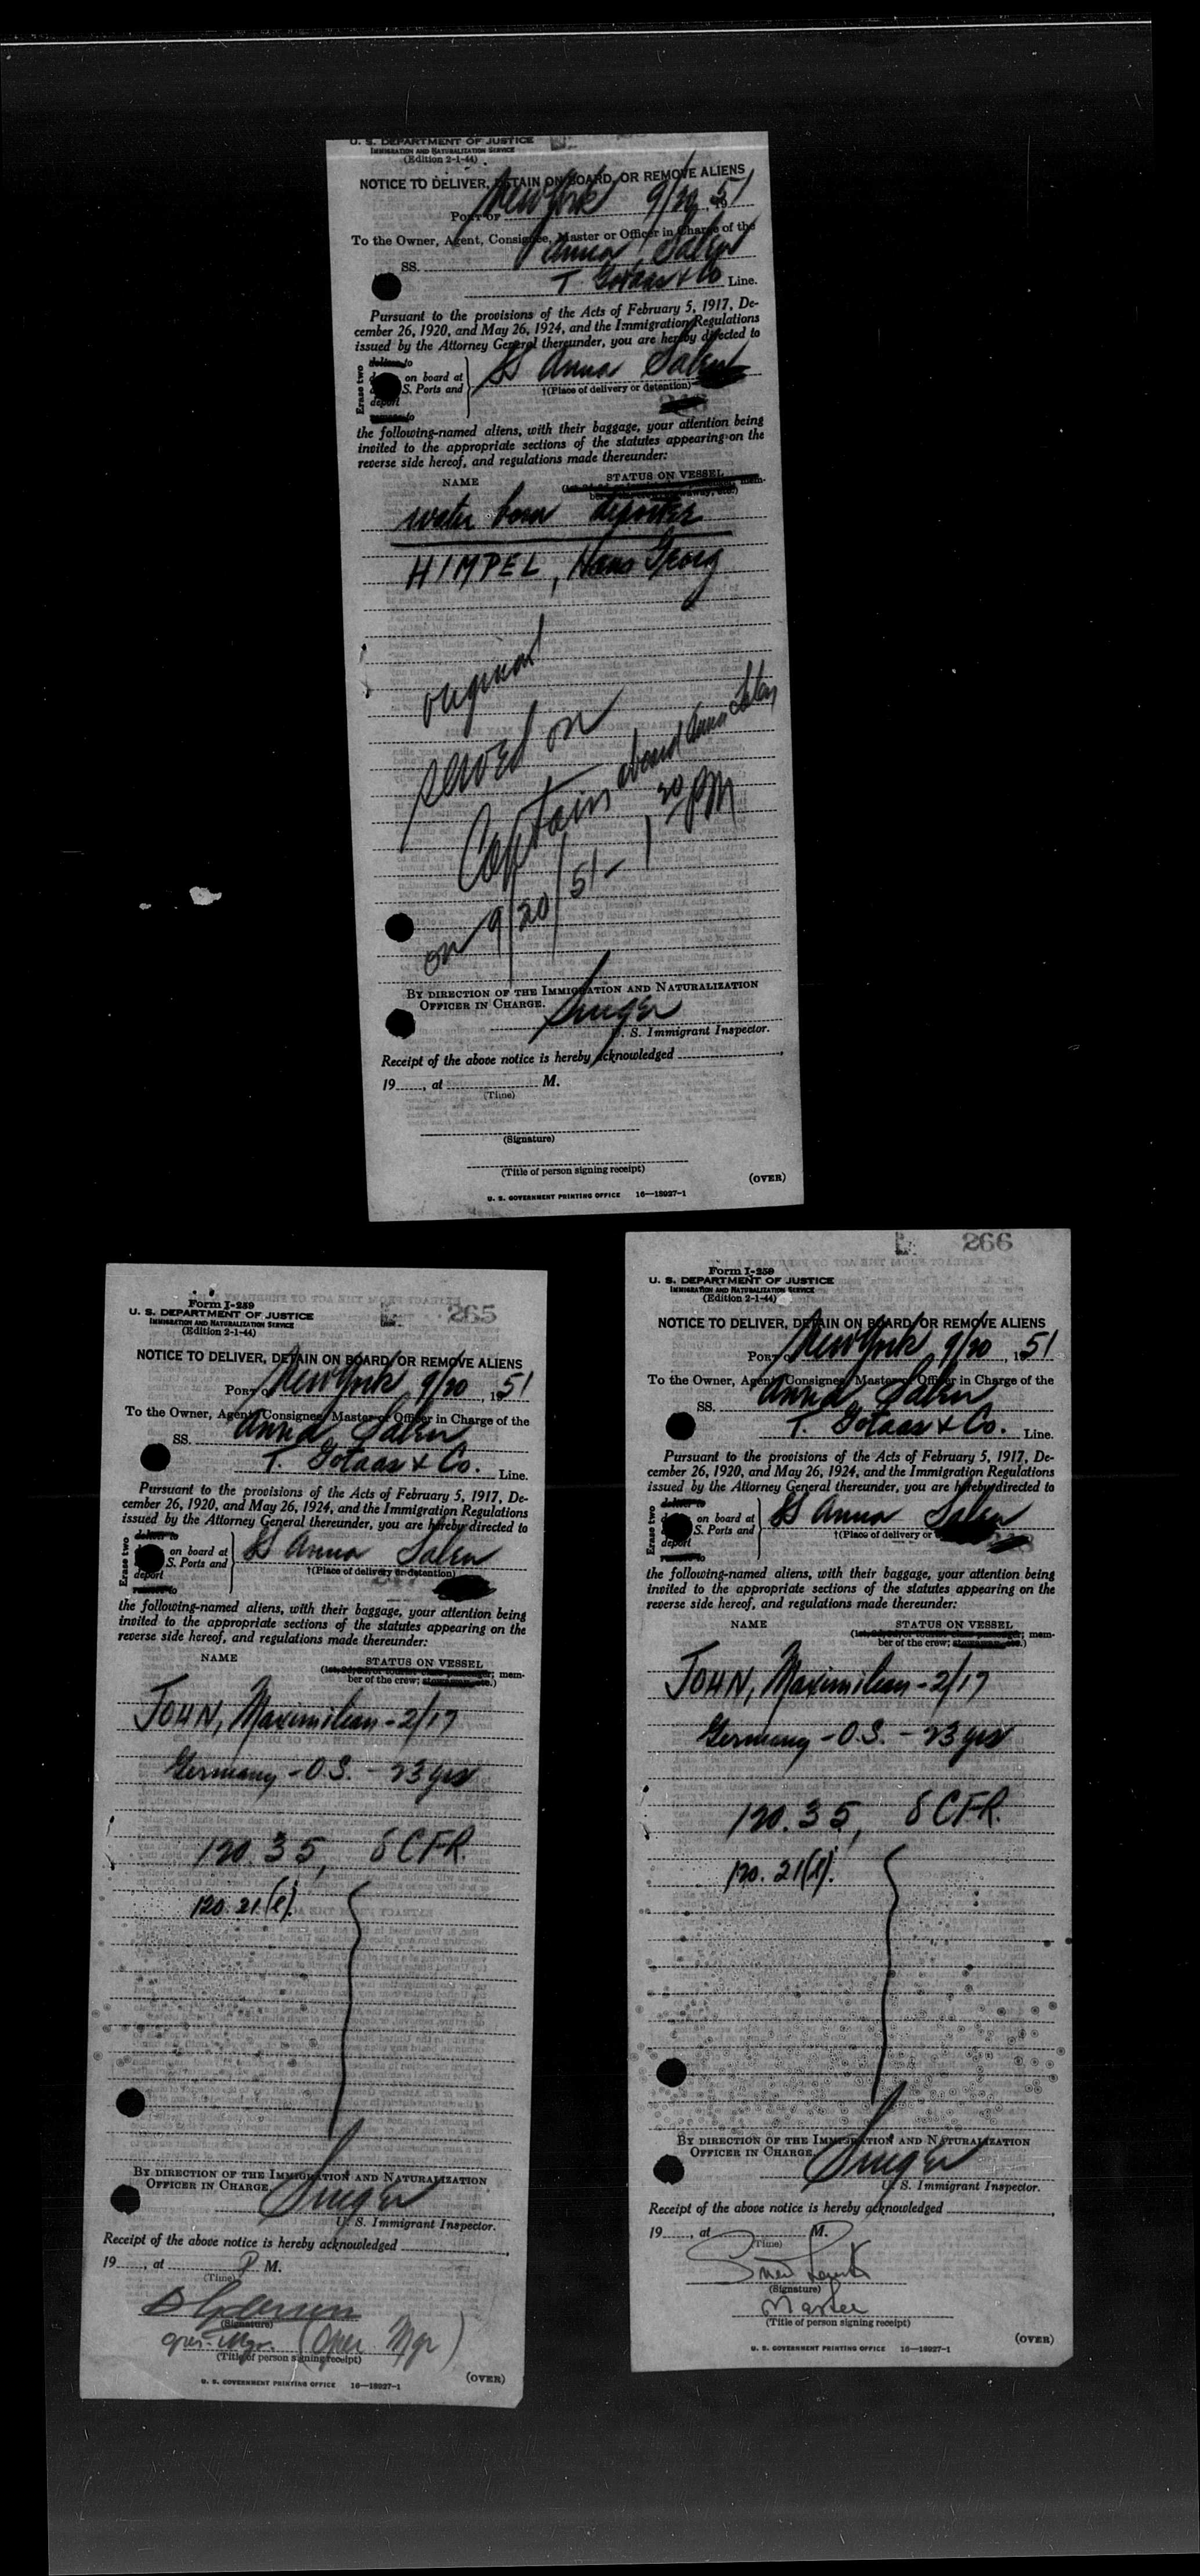 U. S. DEPARTMENT OF JUSTICE
IMMIGRATION AND NATURALIZATION SERVICE
(Edition 2-1-44)
NOTICE TO DELIVER, DETAIN ON BOARD, OR REMOVE ALIENS
PORT OF New York 9/20, 1951
To the Owner, Agent, Consignee, Master or Officer in Charge of the
SS. Anna Salen
T. Gotaas & Co Line.
Pursuant to the provisions of the Acts of February 5, 1917, De-
cember 26, 1920, and May 26, 1924, and the Immigration Regulations
issued by the Attorney General thereunder, you are hereby directed to
Erase two
deliver to
on board at
S. Ports and
deport
remove to
SS Anna Salen
†(Place of delivery or detention)
the following-named aliens, with their baggage, your attention being
invited to the appropriate sections of the statutes appearing on the
reverse side hereof, and regulations made thereunder:
NAME STATUS ON VESSEL
mem-
water born deportee
HIMPEL, Hans Georg
original
served on
Captain aboard Anna Salen
on 9/20/51 - 1 30 PM
BY DIRECTION OF THE IMMIGRATION AND NATURALIZATION
OFFICER IN CHARGE.
Singer
U. S. Immigrant Inspector.
Receipt of the above notice is hereby acknowledged
19, at M.
(Time)
(Signature)
(Title of person signing receipt)
(OVER)
U. S. GOVERNMENT PRINTING OFFICE 16—18927-1
265
Form I-259
U. S. DEPARTMENT OF JUSTICE
IMMIGRATION AND NATURALIZATION SERVICE
(Edition 2-1-44)
NOTICE TO DELIVER, DETAIN ON BOARD, OR REMOVE ALIENS
PORT OF New York 9/20, 1951
To the Owner, Agent, Consignee, Master or Officer in Charge of the
SS. Anna Salen
T. Gotaas & Co. Line.
Pursuant to the provisions of the Acts of February 5, 1917, De-
cember 26, 1920, and May 26, 1924, and the Immigration Regulations
issued by the Attorney General thereunder, you are hereby directed to
Erase two
deliver to
on board at
S. Ports and
deport
remove to
SS Anna Salen
†(Place of delivery or detention)
the following-named aliens, with their baggage, your attention being
invited to the appropriate sections of the statutes appearing on the
reverse side hereof, and regulations made thereunder:
NAME STATUS ON VESSEL
(1st, 2d, 3d, or tourist class passenger; mem-
ber of the crew; stowaway, etc.)
JOHN, Maximilian - 2/17
Germany - O.S. - 23 yrs
120.35, 8 CFR.
120.21(l).
BY DIRECTION OF THE IMMIGRATION AND NATURALIZATION
OFFICER IN CHARGE.
Singer
U. S. Immigrant Inspector.
Receipt of the above notice is hereby acknowledged
19, at P M.
(Time)
(Signature)
Oper. Mgr. (Oper Mgr)
(Title of person signing receipt)
(OVER)
U. S. GOVERNMENT PRINTING OFFICE 16—18927-1
266
Form I-259
U. S. DEPARTMENT OF JUSTICE
IMMIGRATION AND NATURALIZATION SERVICE
(Edition 2-1-44)
NOTICE TO DELIVER, DETAIN ON BOARD, OR REMOVE ALIENS
PORT OF New York 9/20, 1951
To the Owner, Agent, Consignee, Master or Officer in Charge of the
SS. Anna Salen
T. Gotaas & Co. Line.
Pursuant to the provisions of the Acts of February 5, 1917, De-
cember 26, 1920, and May 26, 1924, and the Immigration Regulations
issued by the Attorney General thereunder, you are hereby directed to
Erase two
deliver to
on board at
S. Ports and
deport
remove to
SS Anna Salen
†(Place of delivery or
the following-named aliens, with their baggage, your attention being
invited to the appropriate sections of the statutes appearing on the
reverse side hereof, and regulations made thereunder:
NAME STATUS ON VESSEL
(1st, 2d, 3d, or tourist class passenger; mem-
ber of the crew; stowaway, etc.)
JOHN, Maximilian - 2/17
Germany - O.S. - 23 yrs
120.35, 8 CFR.
120.21(l).
BY DIRECTION OF THE IMMIGRATION AND NATURALIZATION
OFFICER IN CHARGE.
Singer
U. S. Immigrant Inspector.
Receipt of the above notice is hereby acknowledged
19, at M.
(Time)
(Signature)
Master
(Title of person signing receipt)
(OVER)
U. S. GOVERNMENT PRINTING OFFICE 16—18927-1